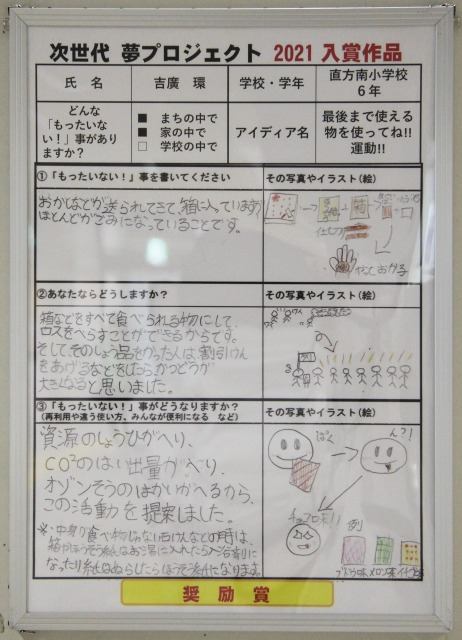 次世代 夢プロジェクト 2021 入賞作品
氏 名
吉廣 環
学校・学年
直方南小学校
6年
どんな
「もったいな
い!」事があり
ますか?
■ まちの中で
■ 家の中で
□ 学校の中で
アイディア名
最後まで使える
物を使ってね!!
運動!!
①「もったいない!」事を書いてください
その写真やイラスト(絵)
おかしなどが送られてきて、箱に入っていますが
ほとんどがごみになっていることです。
②あなたならどうしますか?
その写真やイラスト(絵)
箱などをすべて食べられる物にして、
ロスをへらすことができるからです。
そして、そのしょう品をかった人は、割引けん
をあげるなどをしたら、かつどうが
大きくなると思いました。
③「もったいない!」事がどうなりますか?
(再利用や違う使い方、みんなが便利になる など)
その写真やイラスト(絵)
資源のしょうひがへり、
CO²のはい出量がへり、
オゾンそうのはかいがへるから、
この活動を提案しました。
※・中身が食べ物じゃない石けんなどの時は、
箱やほうそう紙はお湯に入れたら入浴剤に
なったり紙はぬらしたらほうそう紙になります。
ぱく
ん?!
チョコだ!!
例
ブドウ味 メロン味 イチゴ味
奨励賞